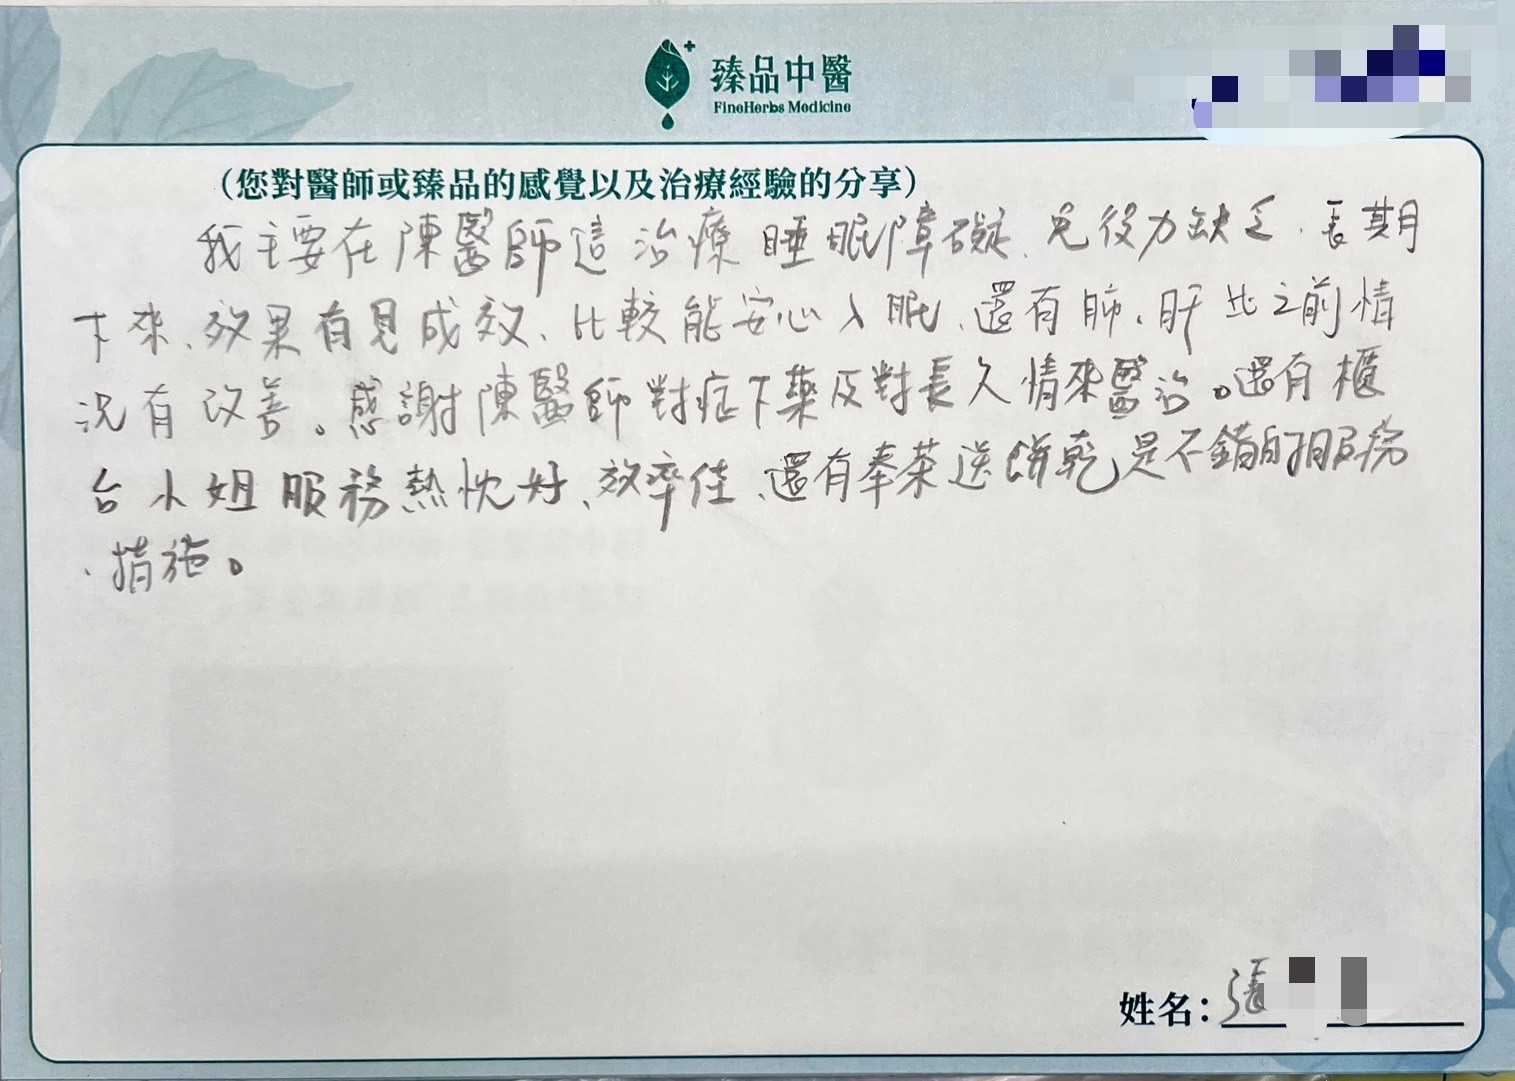 臻品中醫
FineHerbs Medicine
（您對醫師或臻品的感覺以及治療經驗的分享）
我主要在陳醫師這治療睡眠障礙、免役力缺乏、長期
下來、效果有見成效、比較能安心入眠、還有肺、肝比之前情
況有改善。感謝陳醫師對症下藥及對長久情來醫治。還有櫃
台小姐服務熱忱好、效率佳、還有奉茶送餅乾是不錯的服務
措施。
姓名：張